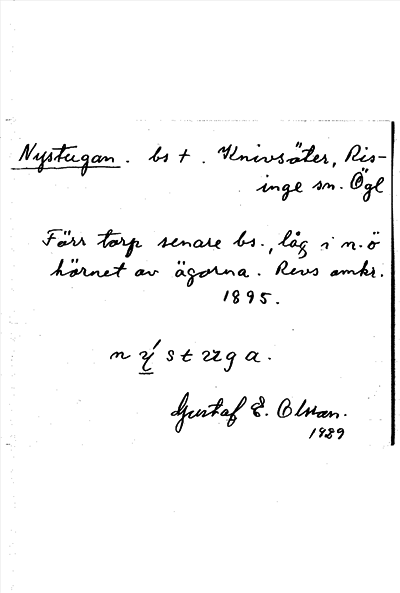 Nystugan. bs †. Knivsäter, Ris-
inge sn. Ögl
Förr torp senare bs., låg i n.ö
hörnet av ägorna. Revs omkr.
1895.
nýstuga.
Gustaf E. Olsson.
1929